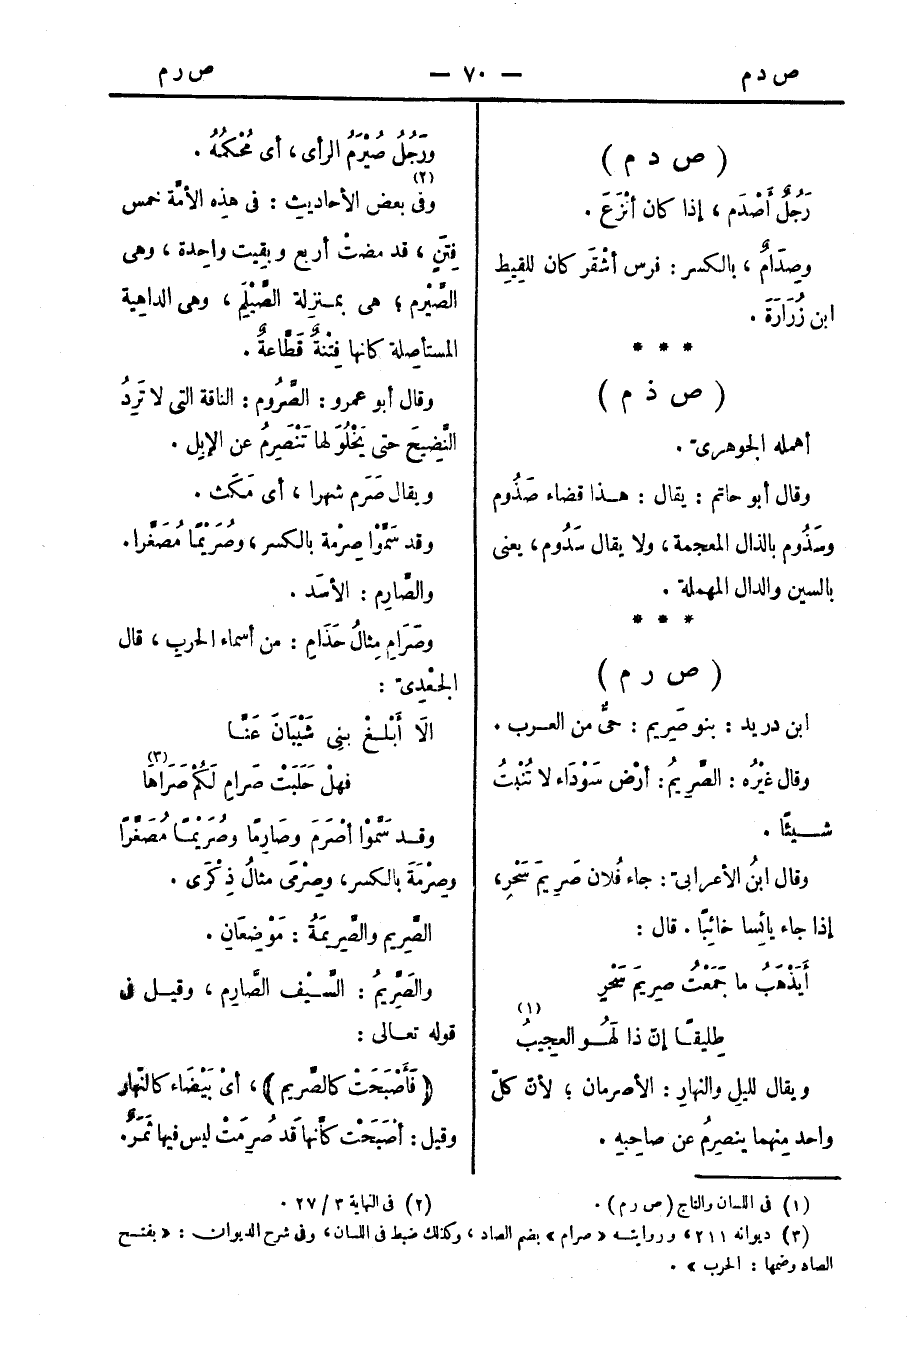 ص د م — ٧٠ — ص ر م
( ص د م )
رَجُلٌ أَصْدَم ، إذا كان أنْزَعَ .
وصِدَامٌ ، بالكسر : فرس أشْقَر كان للقِيط
ابن زُرَارَةَ .
* * *
( ص ذ م )
أهمله الجوهرىّ .
وقال أبو حاتم : يقال : هـذا قضاء صَذُوم
وسَذُوم بالذال المعجمة ، ولا يقال سَدُوم ، يعنى
بالسين والدال المهملة .
* * *
( ص ر م )
ابن دريد : بنو صَرِيم : حىٌّ من العرب .
وقال غيْرُه : الصَّرِيمُ : أرْض سَوْدَاء لا تُنْبِتُ
شيئًا .
وقال ابنُ الأعرابىّ : جاء فُلان صَرِيمَ سَحْرٍ ،
إذا جاء يائِسا خائِبًا . قال :
أَيَذْهَبُ ما جَمَعْتُ صرِيمَ سَحْرٍ
طلِيقًا إنّ ذا لَهُو العجِيبُ (١)
ويقال لليلِ والنهارِ : الأصرمان ؛ لأنّ كلّ
واحد مِنهما ينصرِمُ عن صاحِبهِ .
ورَجُلُ صُيْرَمُ الرأى ، أى مُحْكَمُهُ .
وفى بعض الأحاديثِ (٢) : فى هذِه الأمّة خمس
فِتَنٍ ، قد مضتْ أربع وبقِيت واحِدة ، وهى
الصَّيْرم ؛ هى بمنزلة الصَّيْلَمِ ، وهى الداهِية
المستأصِلة كانها فِتْنةٌ قَطَّاعةٌ .
وقال أبو عمرو : الصَّرُوم : الناقة التى لا تَرِدُ
النَّضِيحَ حتى يَخْلُوَ لها تَنْصَرِمُ عن الإبِل .
ويقال صَرَم شهرا ، أى مَكَث .
وقد سَمَّوْا صِرْمة بالكسر ، وصُرَيْمًا مُصَغَّرا .
والصَّارِم : الأسَد .
وصَرَامِ مِثالُ حَذَامِ : من أسماء الحربِ ، قال
الجعْدِىّ :
الَا أبْلِغْ بنِى شَيْبَانَ عَنَّا
فهلْ حَلَبَتْ صَرامِ لَكُمْ صَرَاهَا (٣)
وقد سَمَّوْا أصْرَمَ وصَارِمًا وصُرَيْمًا مُصَغَّرًا
وصِرْمَةَ بالكسر ، وصِرْمَى مثالُ ذِكْرَى .
الصَّرِيم والصَّرِيمَةُ : مَوْضِعَانِ .
والصَّرِيمُ : السَّيْف الصَّارِم ، وقيل فى
قوله تعالى :
﴿ فَأَصْبَحَتْ كالصَّرِيم ﴾ ، أىْ بَيْضَاء كالنّهار
وقيل : أصْبَحَتْ كأنّها قَد صُرِمَتْ ليس فيها ثَمَرٌ .
(١) فى اللسان والتاج ( ص ر م ) .
(٢) فى النهاية ٣/٢٧ .
(٣) ديوانه ٢١١ ، وروايته « صرام » بضم الصاد ، وكذلك ضبط فى اللسان ، وفى شرح الديوان : « بفتح
الصاد وضمها : الحرب » .